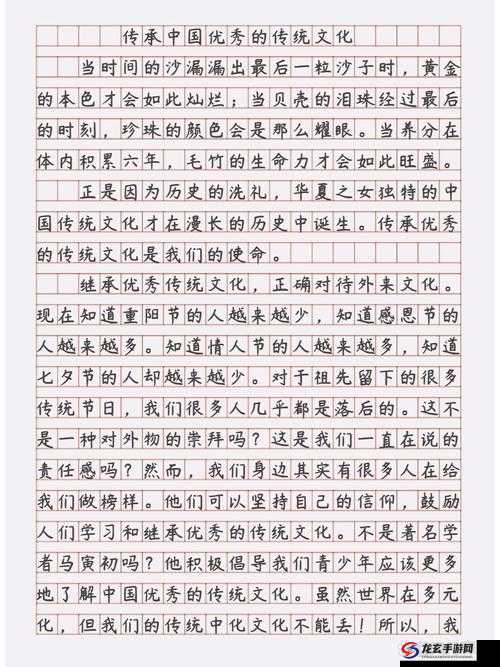 传承中国优秀的传统文化
当时间的沙漏漏出最后一粒沙子时，黄金
的本色才会如此灿烂；当贝壳的泪珠经过最后
的时刻，珍珠的颜色会是那么耀眼。当养分在
体内积累六年，毛竹的生命力才会如此旺盛。
正是因为历史的洗礼，华夏之女独特的中
国传统文化才在漫长的历史中诞生。传承优秀
的传统文化是我们的使命。
继承优秀传统文化，正确对待外来文化。
现在知道重阳节的人越来越少，知道感恩节的
人越来越多。知道情人节的人越来越多，知道
七夕节的人却越来越少。对于祖先留下的很多
传统节日，我们很多人几乎都是落后的。这不
是一种对外物的崇拜吗？这是我们一直在说的
责任感吗？然而，我们身边其实有很多人在给
我们做榜样。他们可以坚持自己的信仰，鼓励
人们学习和继承优秀的传统文化。不是著名学
者马寅初吗？他积极倡导我们青少年应该更多
地了解中国优秀的传统文化。虽然世界在多元
化，但我们的传统中化文化不能丢！所以，我
龙玄手游网